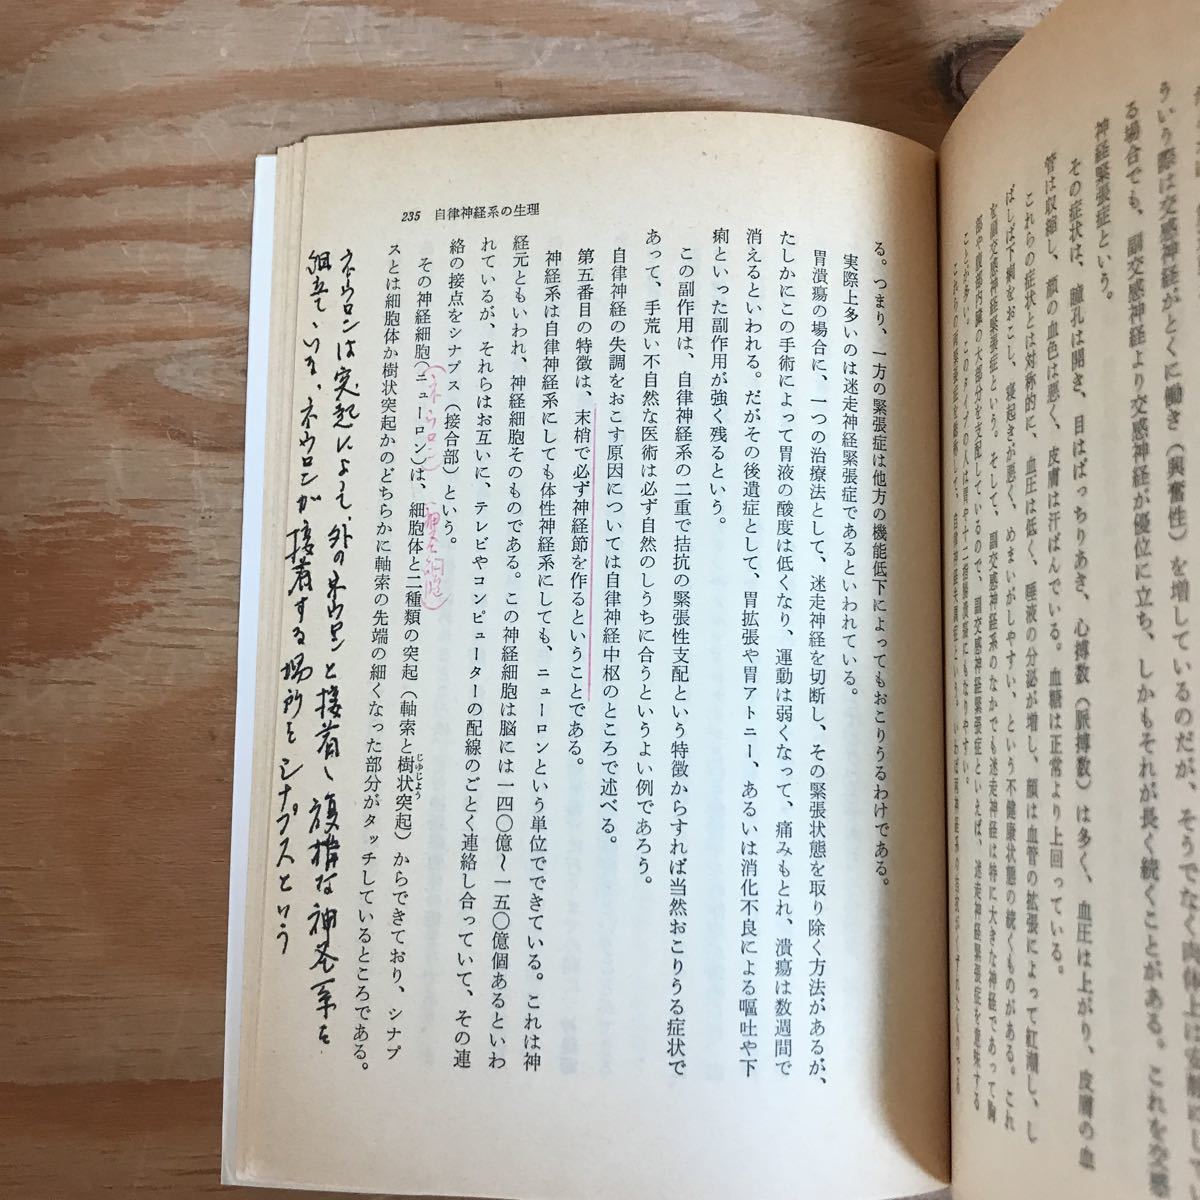 ういう際は交感神経がとくに働き（興奮性）を増しているのだが、そうでなく肉体上は安静にして
る場合でも、副交感神経より交感神経が優位に立ち、しかもそれが長く続くことがある。これを交感
神経緊張症という。
その症状は、瞳孔は開き、目はぱっちりあき、心搏数（脈搏数）は多く、血圧は上がり、皮膚の血
管は収縮し、顔の血色は悪く、皮膚は汗ばんでいる。血糖は正常より上回っている。
これらの症状とは対称的に、血圧は低く、唾液の分泌が増し、顔は血管の拡張によって紅潮し、し
ばしば下痢をおこし、寝起きが悪く、めまいがしやすい、という不健康状態の続くものがある。これ
を副交感神経緊張症という。そして、副交感神経系のなかでも迷走神経は特に大きな神経であって胸
部や腹部内臓の大部分を支配しているので、副交感神経緊張症といえば、迷走神経緊張症を意味する
ことが多い。このタイプの人は胃や十二指腸潰瘍にもなりやすい。
これらの両緊張症を総称して、自律神経失調症という。いわば両神経系の
235 自律神経系の生理
る。つまり、一方の緊張症は他方の機能低下によってもおこりうるわけである。
実際上多いのは迷走神経緊張症であるといわれている。
胃潰瘍の場合に、一つの治療法として、迷走神経を切断し、その緊張状態を取り除く方法があるが、
たしかにこの手術によって胃液の酸度は低くなり、運動は弱くなって、痛みもとれ、潰瘍は数週間で
消えるといわれる。だがその後遺症として、胃拡張や胃アトニー、あるいは消化不良による嘔吐や下
痢といった副作用が強く残るという。
この副作用は、自律神経系の二重で拮抗の緊張性支配という特徴からすれば当然おこりうる症状で
あって、手荒い不自然な医術は必ず自然のしうちに合うというよい例であろう。
自律神経の失調をおこす原因については自律神経中枢のところで述べる。
第五番目の特徴は、末梢で必ず神経節を作るということである。
神経系は自律神経系にしても体性神経系にしても、ニューロンという単位でできている。これは神
経元ともいわれ、神経細胞そのものである。この神経細胞は脳には一四〇億〜一五〇億個あるといわ
れているが、それらはお互いに、テレビやコンピューターの配線のごとく連絡し合っていて、その連
絡の接点をシナプス（接合部）という。
（ネウロン）
細胞）
その神経細胞（ニューロン）は、細胞体と二種類の突起（軸索と樹状突起）からできており、シナプ
じゅじょう
スとは細胞体か樹状突起かのどちらかに軸索の先端の細くなった部分がタッチしているところである。
ネウロンは突起によって、外のネウロンと接着、複構な神全系を
組立ている、ネウロンが接着する場所をシナプスという